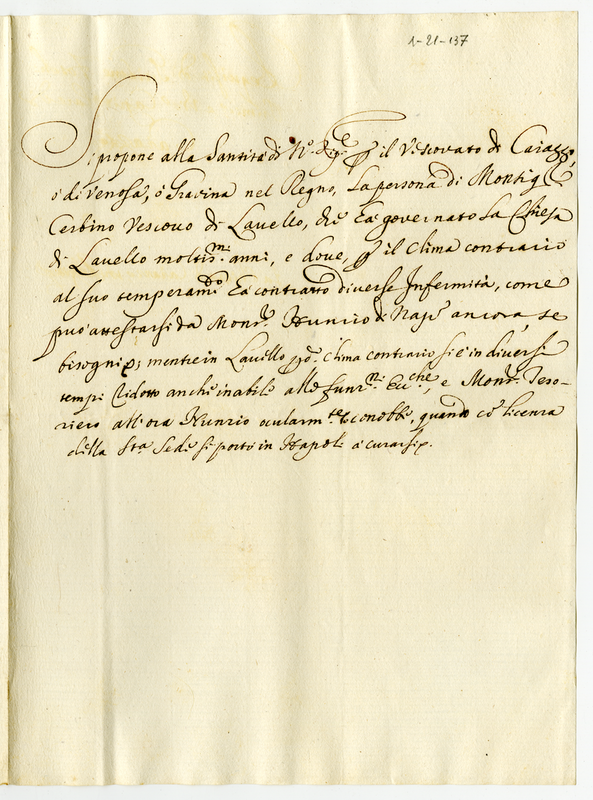 1-21-137
Si propone alla Santità di N.º Sig.re p il Vescovato di Caiazzo,
ò di Venosa, ò Gravina nel Regno, La persona di Monsig.r
Cerbino Vescovo di Lavello, che hà governato La Chiesa
di Lavello moltis.mi anni, e dove, p il Clima contrario
al suo temperam.to hà contratto diverse Infermità, come
può attestarsi da Mons.r Nunzio di Nap.i ancora, se
bisogni; mentre in Lavello p d.º Clima contrario si è in diversi
tempi ridotto anche inabile alle funz.ni Ecc.che, e Mons.r Teso-
riero all'ora Nunzio ocularm.te lo conobbe, quando cõ licenza
della S.ta Sede si portò in Napoli à curarsi.